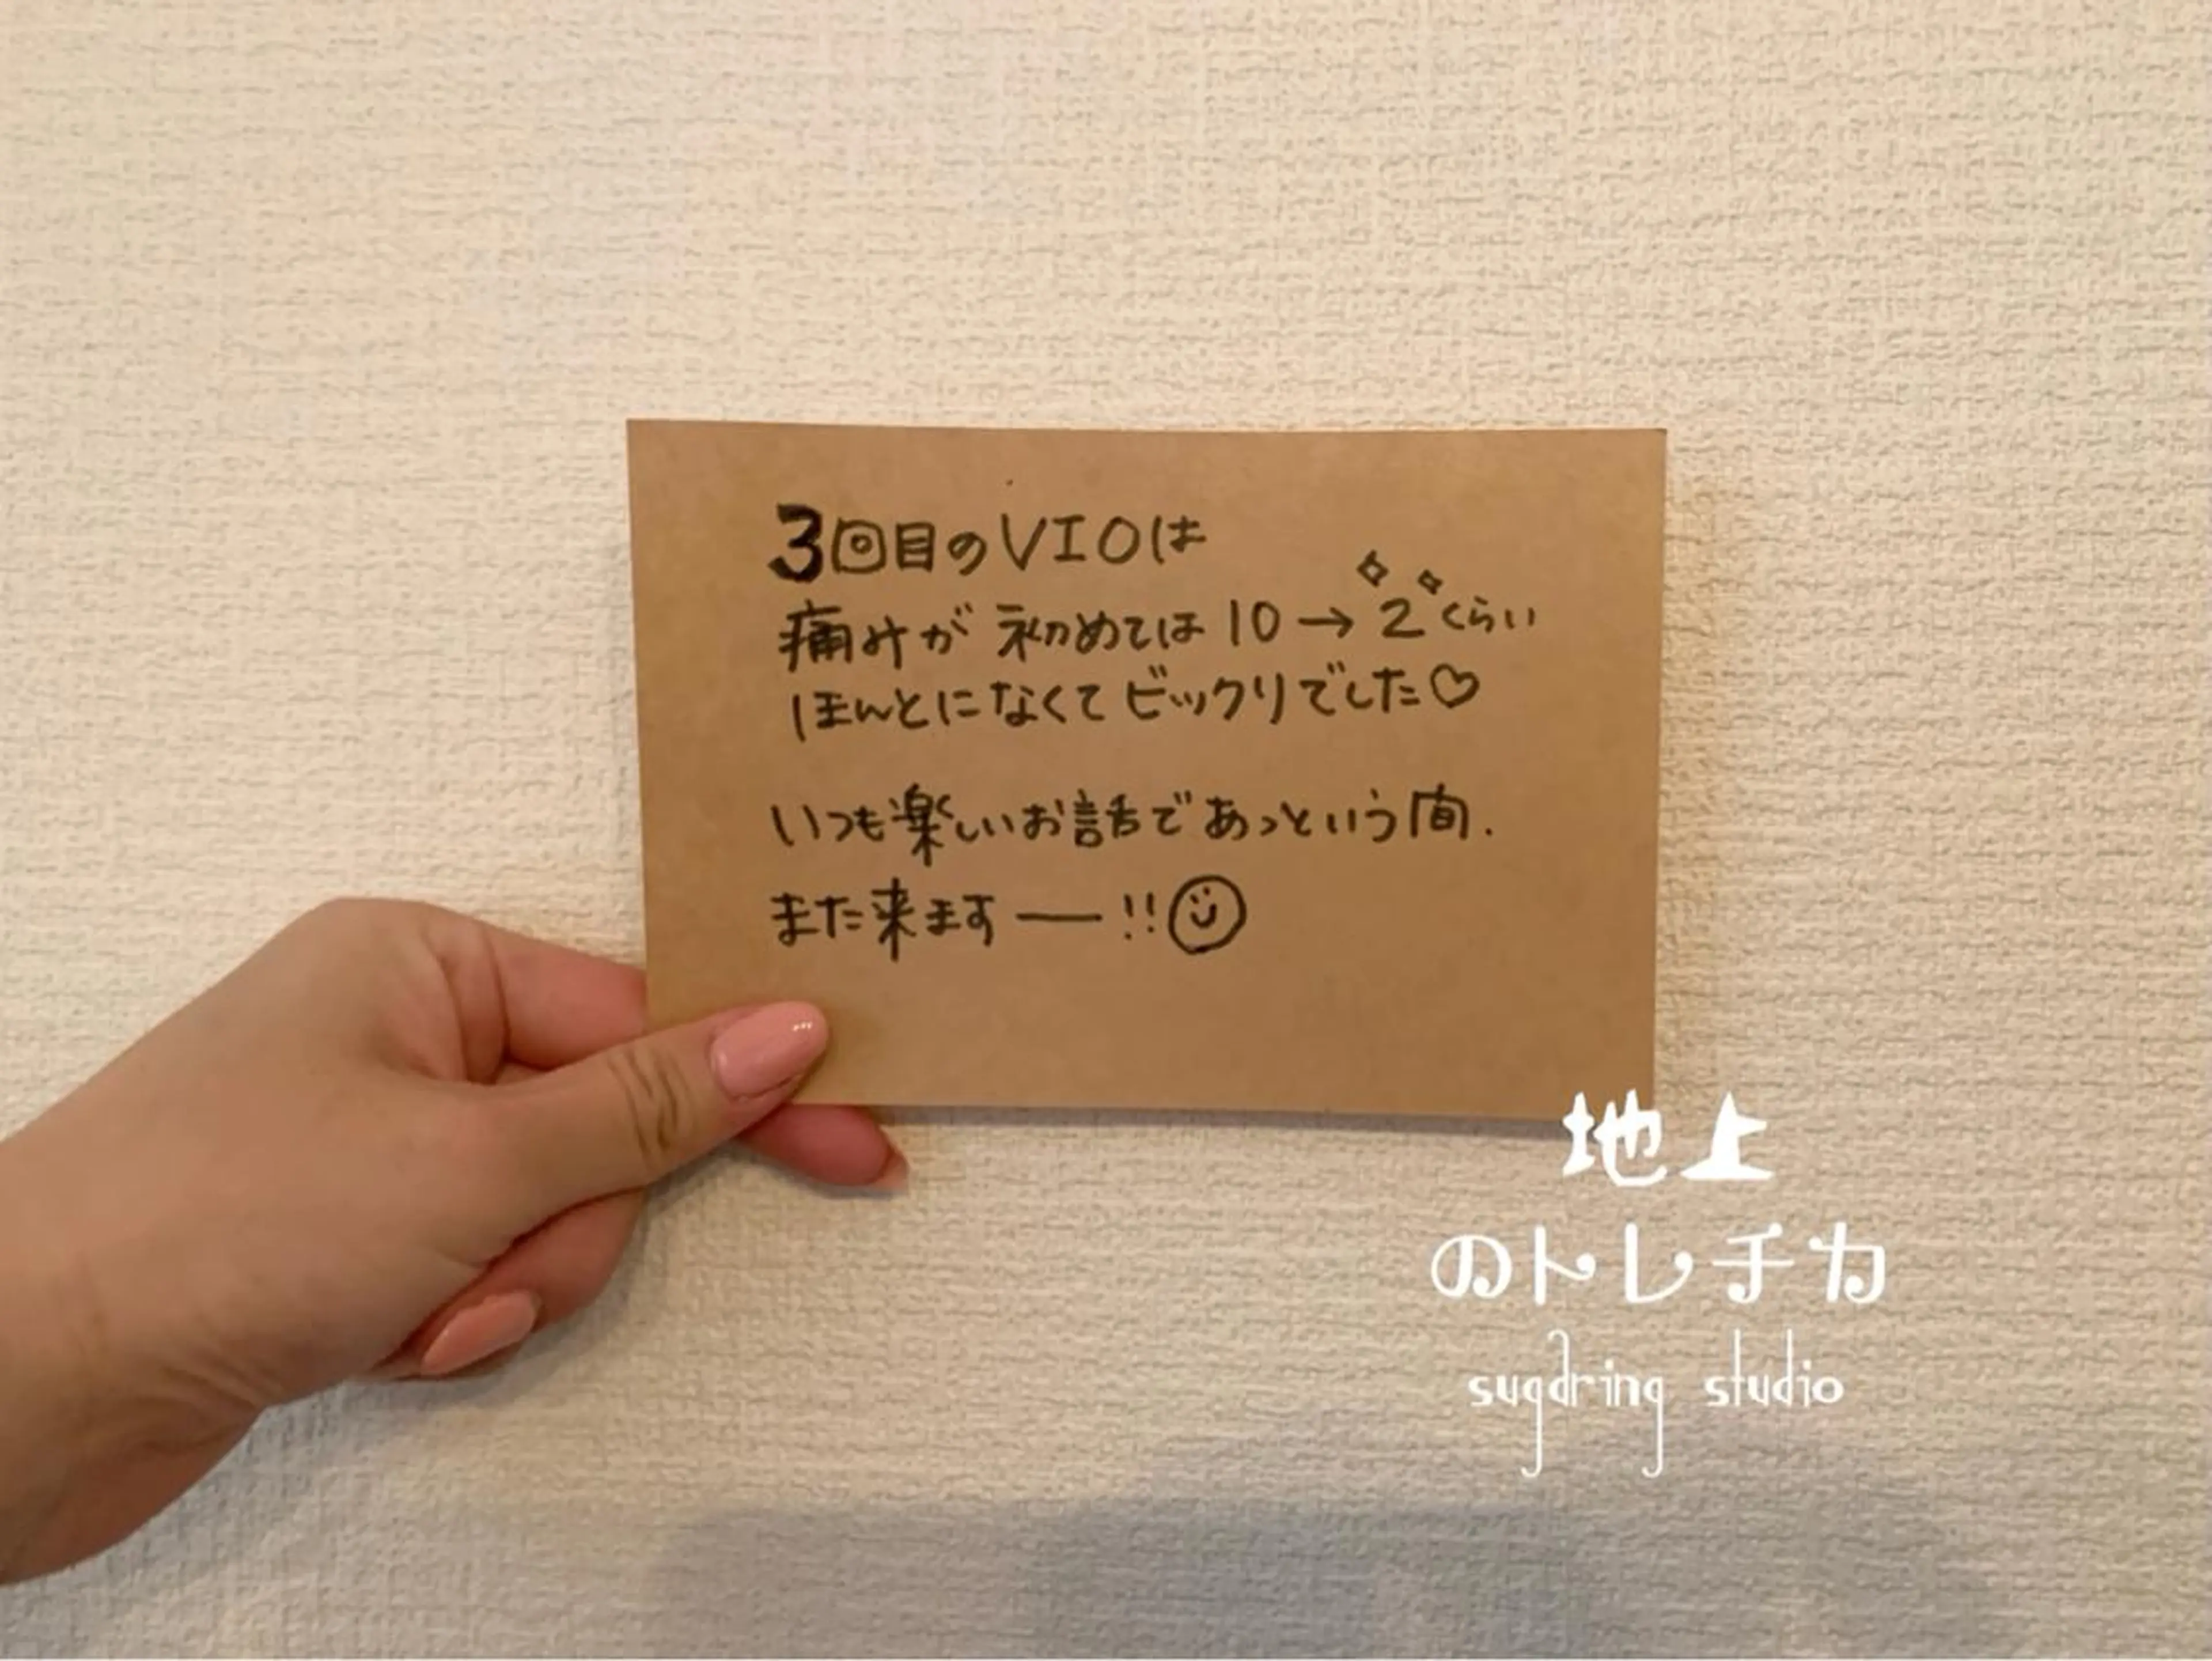 3回目のVIOは
痛みが初めては10→2くらい
ほんとになくてビックリでした♡
いつも楽しいお話であっという間.
また来ますー!!
地上
のトレチカ
sugaring studio